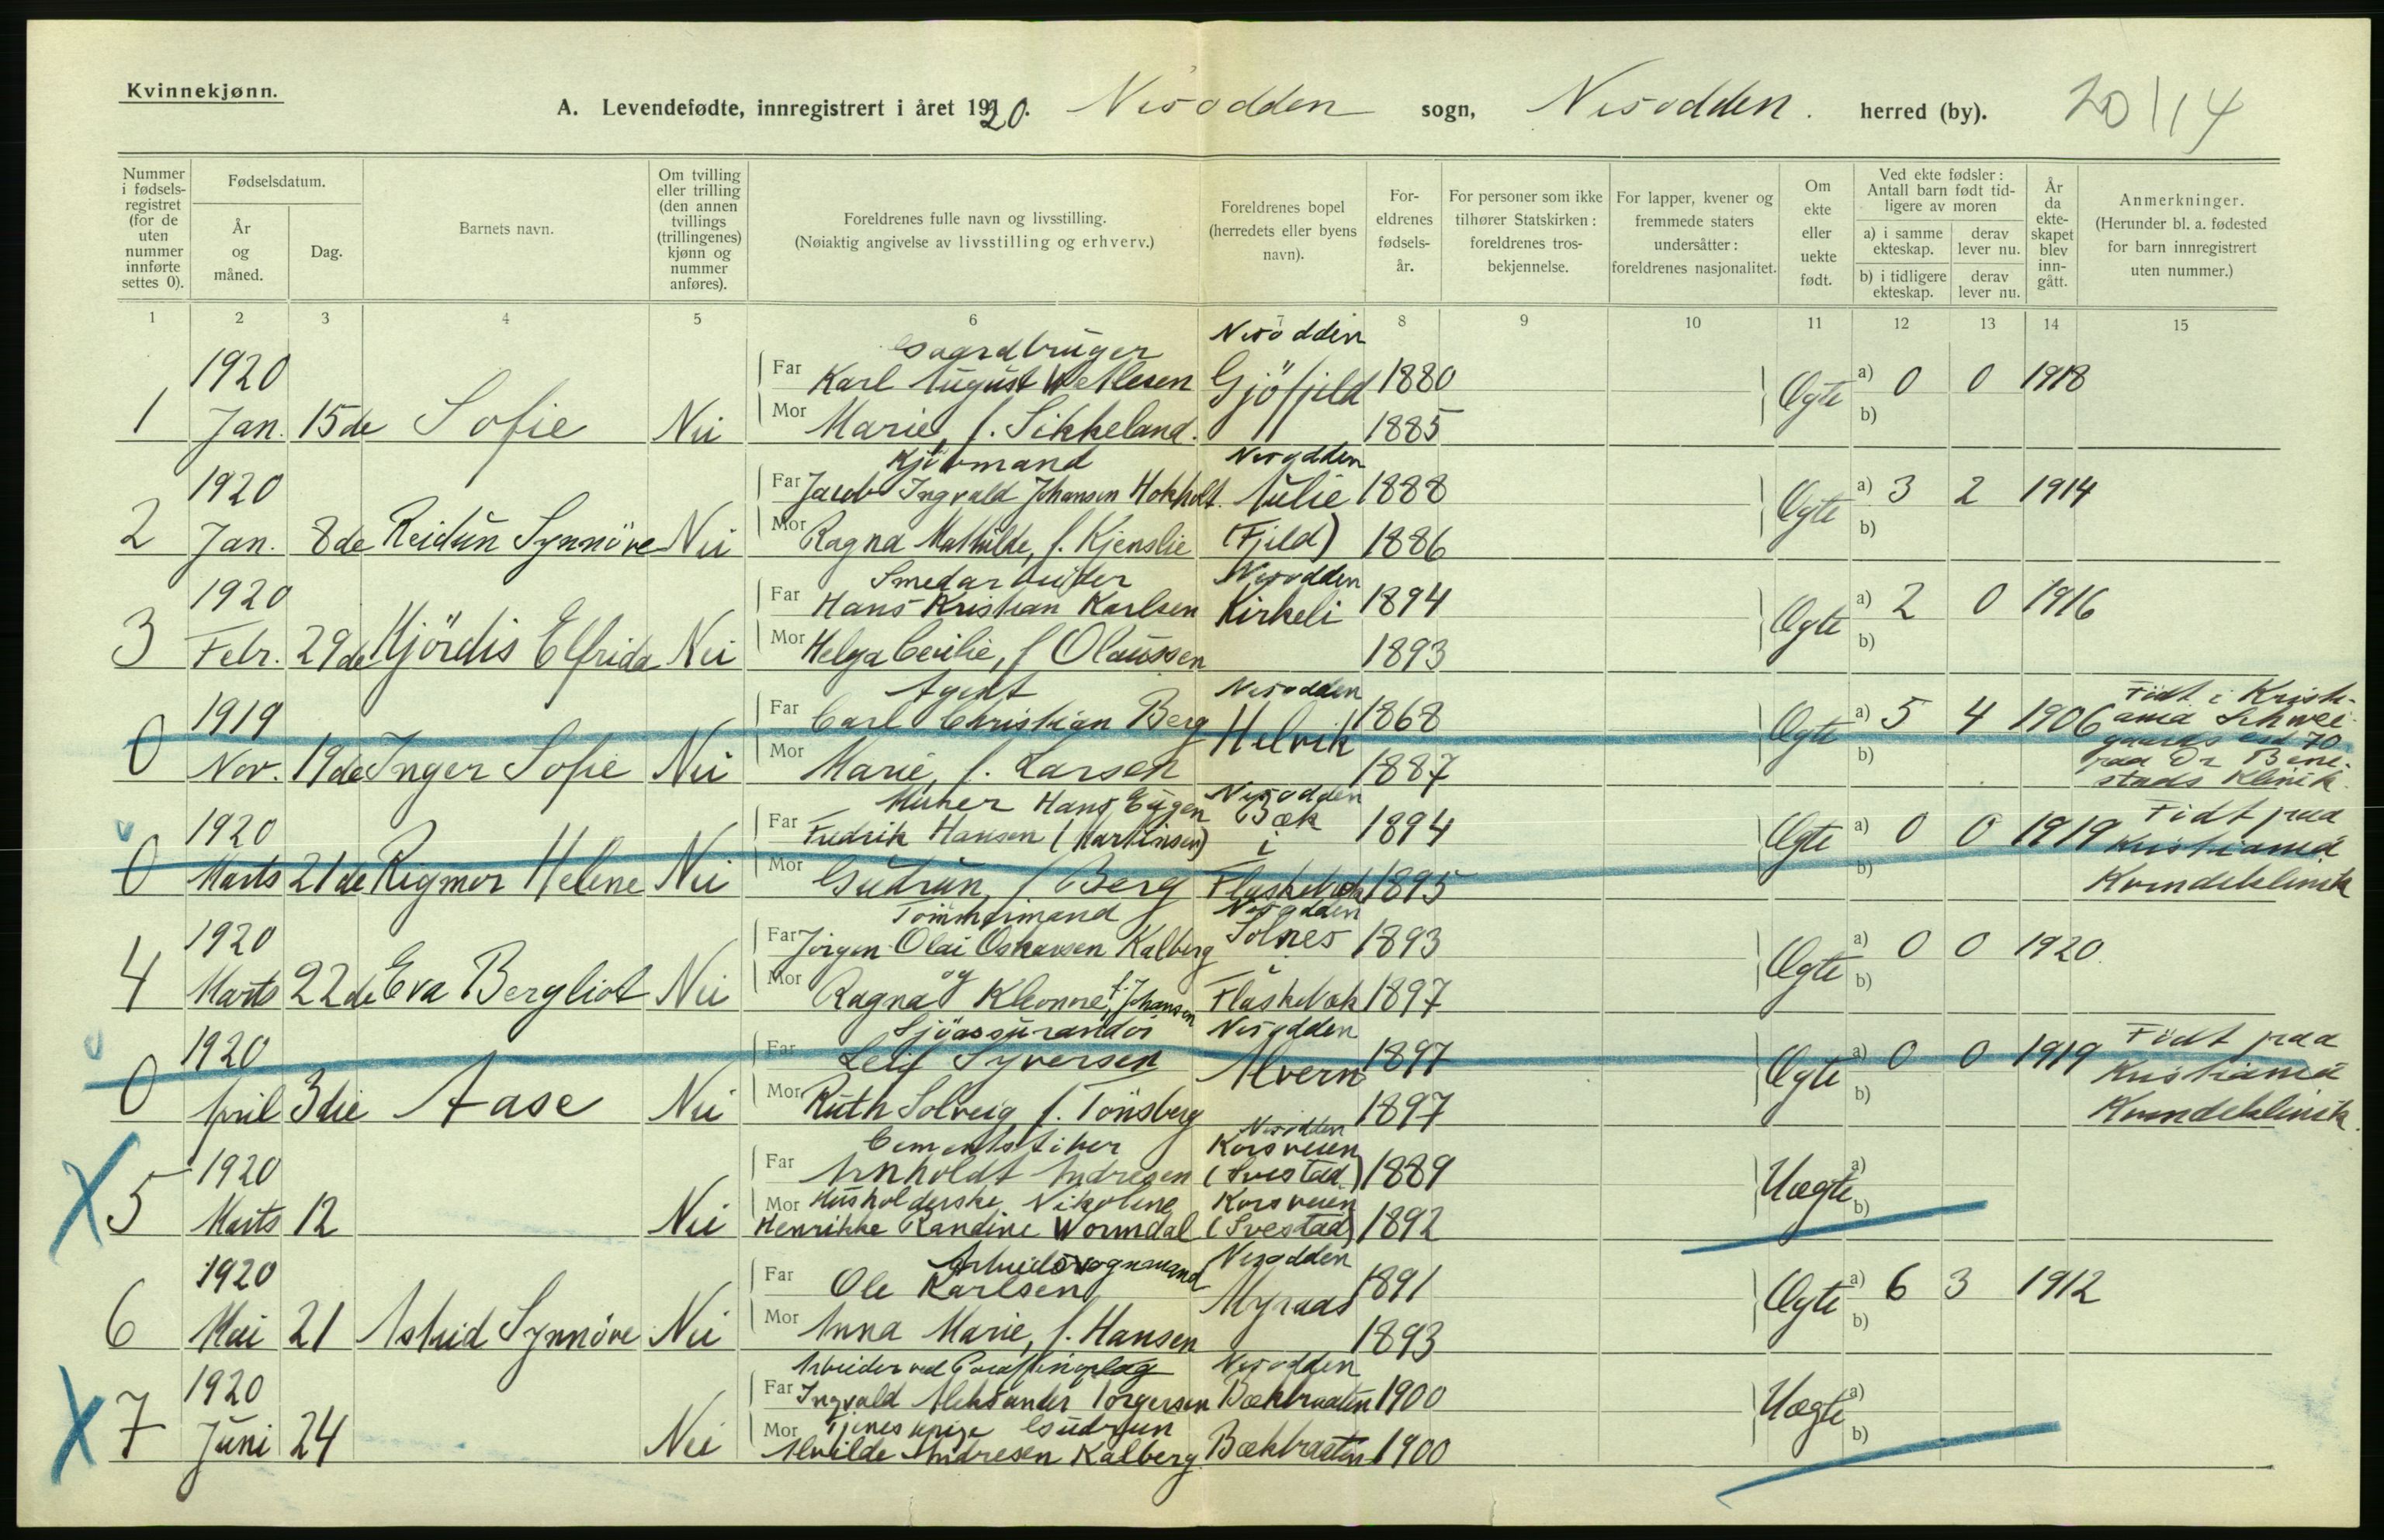 Kvinnekjønn.
A. Levendefødte, innregistrert i året 1920. Nesodden sogn, Nesodden. herred (by). 20/14
Nummer i fødsels-registret (for de uten nummer innførte settes 0).
Fødselsdatum.
År og måned.
Dag.
Barnets navn.
Om tvilling eller trilling (den annen tvillings (trillingenes) kjønn og nummer anføres).
Foreldrenes fulle navn og livsstilling.
(Nøiaktig angivelse av livsstilling og erhverv.)
Foreldrenes bopel (herredets eller byens navn).
For-eldrenes fødsels-år.
For personer som ikke tilhører Statskirken: foreldrenes tros-bekjennelse.
For lapper, kvener og fremmede staters undersåtter: foreldrenes nasjonalitet.
Om ekte eller uekte født.
Ved ekte fødsler: Antall barn født tid-ligere av moren
a) i samme ekteskap.
derav lever nu.
b) i tidligere ekteskap.
derav lever nu.
År da ekte-skapet blev inn-gått.
Anmerkninger.
(Herunder bl. a. fødested for barn innregistrert uten nummer.)
1 2 3 4 5 6 7 8 9 10 11 12 13 14 15
1920 Gaardbruger Nesodden
Far Karl August Wetlesen Gjöfjeld 1880 Ægte a) 0 0 1918
1 Jan. 15de Sofie Nei Mor Marie, f. Sikkeland. 1885 b)
1920 Kjörmand Nesodden
Far Jacob Ingvald Johansen Hokholt. 1888 Ægte a) 3 2 1914
2 Jan. 8de Reidun Synnöve Nei Mor Ragna Mathilde, f. Kjenslie (Fjeld) 1886 b)
1920 Smedarbeider Nesodden
Far Hans Kristian Karlsen Kirkeli 1894 Ægte a) 2 0 1916
3 Febr. 29de Hjördis Elfrida Nei Mor Helga Cecilie, f Olaussen 1893 b)
1919 Agent Nesodden
Far Carl Christian Berg Helvik 1868 Ægte a) 5 4 1906 Födt i Kristi-
ania Schwei-
gaards gd 70
0 Nov. 19de Inger Sofie Nei Mor Marie, f. Larsen 1887 b) paa Dr Bene-
stads Klinik.
1920 Murer Hans Eugen Nesodden
Far Fredrik Hansen (Martinsen) Bæk i 1894 Ægte a) 0 0 1919 Födt paa
Kristiania
0 Marts 21de Rigmor Helene Nei Mor Gudrun, f Berg Flaskebæk 1895 b) Kvindeklinik
1920 Tömmermand Nesodden
Far Jörgen Olai Oskarsen Kalberg Solnes 1893 Ægte a) 0 0 1920.
4 Marts 22de Eva Bergliot Nei Mor og Ragna f. Johansen Flaskebæk 1897 b)
1920 Sjöassurandör Nesodden
Far Leif Syversen Alvern 1897 Ægte a) 0 0 1919 Födt paa
Kristiania
0 April 3die Aase Nei Mor Ruth Solveig f. Tönsberg 1897 b) Kvindeklinik.
1920 Cementstöber Nesodden
Korsveien
Far Arnholdt Andresen (Svestad.) 1889 Uægte a)
X 5 Marts 12 Nei Mor Husholderske Nikoline Korsveien
Henrikke Randine Wormdal (Svestad) 1892 b)
1920 Arbeidsvognmand Nesodden
Far Ole Karlsen Myraas 1891 Ægte a) 6 3 1912
6 Mai 21 Astrid Synnöve Nei Mor Anna Marie, f. Hansen 1893 b)
1920 Arbeider ved Parafinoplag Nesodden
Far Ingvald Aleksander Torgersen Bækbraaten 1900 Uægte a)
X 7 Juni 24 Nei Mor Tjenestepige Gudrun
Alvilde Andresen Kalberg. Bækbraaten 1900 b)